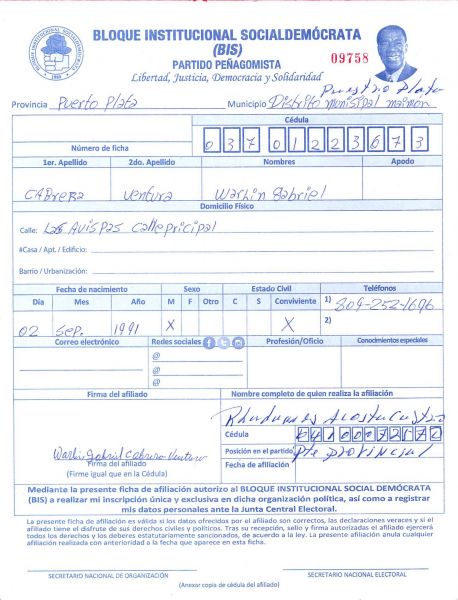 BLOQUE INSTITUCIONAL SOCIALDEMÓCRATA
(BIS)
PARTIDO PEÑAGOMISTA
09758
Libertad, Justicia, Democracia y Solidaridad
Puerto Plata
Provincia Puerto Plata Municipio Distrito municipal maimon
Cédula
Número de ficha 03701223673
1er. Apellido 2do. Apellido Nombres Apodo
CABRERA Ventura Warlin Gabriel
Domicilio Físico
Calle: Las AVISPAS calle pricipal
#Casa / Apt. / Edificio:
Barrio / Urbanización:
Fecha de nacimiento Sexo Estado Civil Teléfonos
Día Mes Año M F Otro C S Conviviente 1) 809-252-1696
02 Sep. 1991 X X 2)
Correo electrónico Redes sociales Profesión/Oficio Conocimientos especiales
@
@
@
Firma del afiliado Nombre completo de quien realiza la afiliación
Acosta
Cédula
Warlin Gabriel Cabrera Ventura Posición en el partido Pte provincial
Firma del afiliado Fecha de afiliación
(Firme igual que en la Cédula)
Mediante la presente ficha de afiliación autorizo al BLOQUE INSTITUCIONAL SOCIAL DEMÓCRATA
(BIS) a realizar mi inscripción única y exclusiva en dicha organización política, así como a registrar
mis datos personales ante la Junta Central Electoral.
La presente ficha de afiliación es válida si los datos ofrecidos por el afiliado son correctos, las declaraciones veraces y si el
afiliado tiene el disfrute de sus derechos civiles y políticos. Tras su recepción, sello y firma autorizadas el afiliado ejercerá
todos los derechos y los deberes estatutariamente sancionados, de acuerdo a la ley. La presente afiliación anula cualquier
afiliación realizada con anterioridad a la fecha que aparece en esta ficha.
SECRETARIO NACIONAL DE ORGANIZACIÓN SECRETARIO NACIONAL ELECTORAL
(Anexar copia de cédula del afiliado)